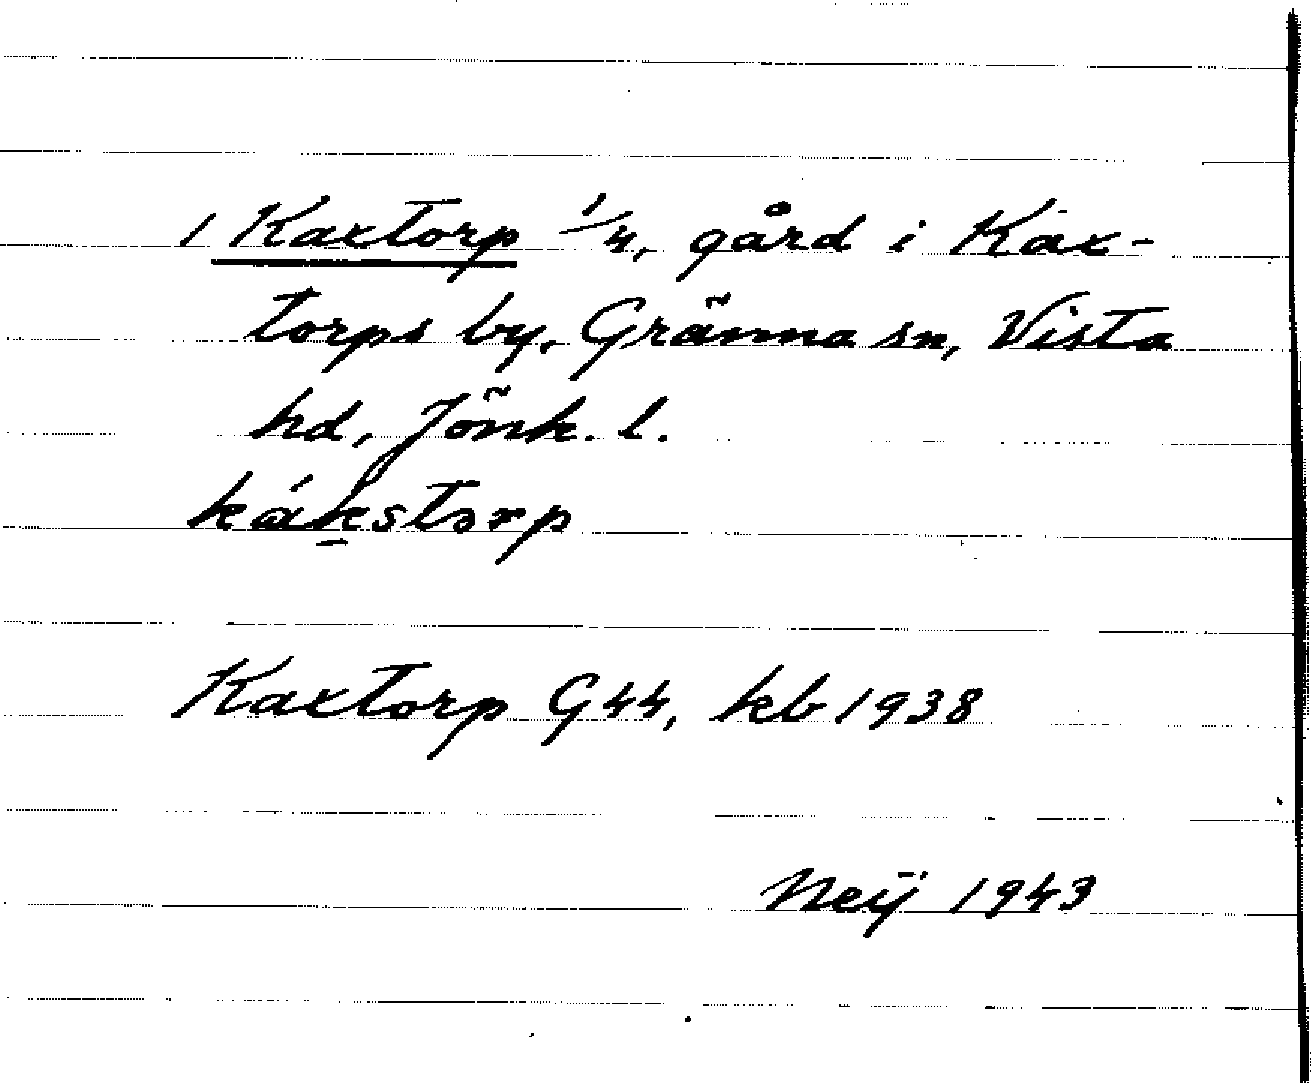 1 Kaxtorp 1/4, gård i Kax-
torps by, Gränna sn, Vista
hd, Jönk. l.
kákstorp
Kaxtorp G44, kb 1938
Neij 1943